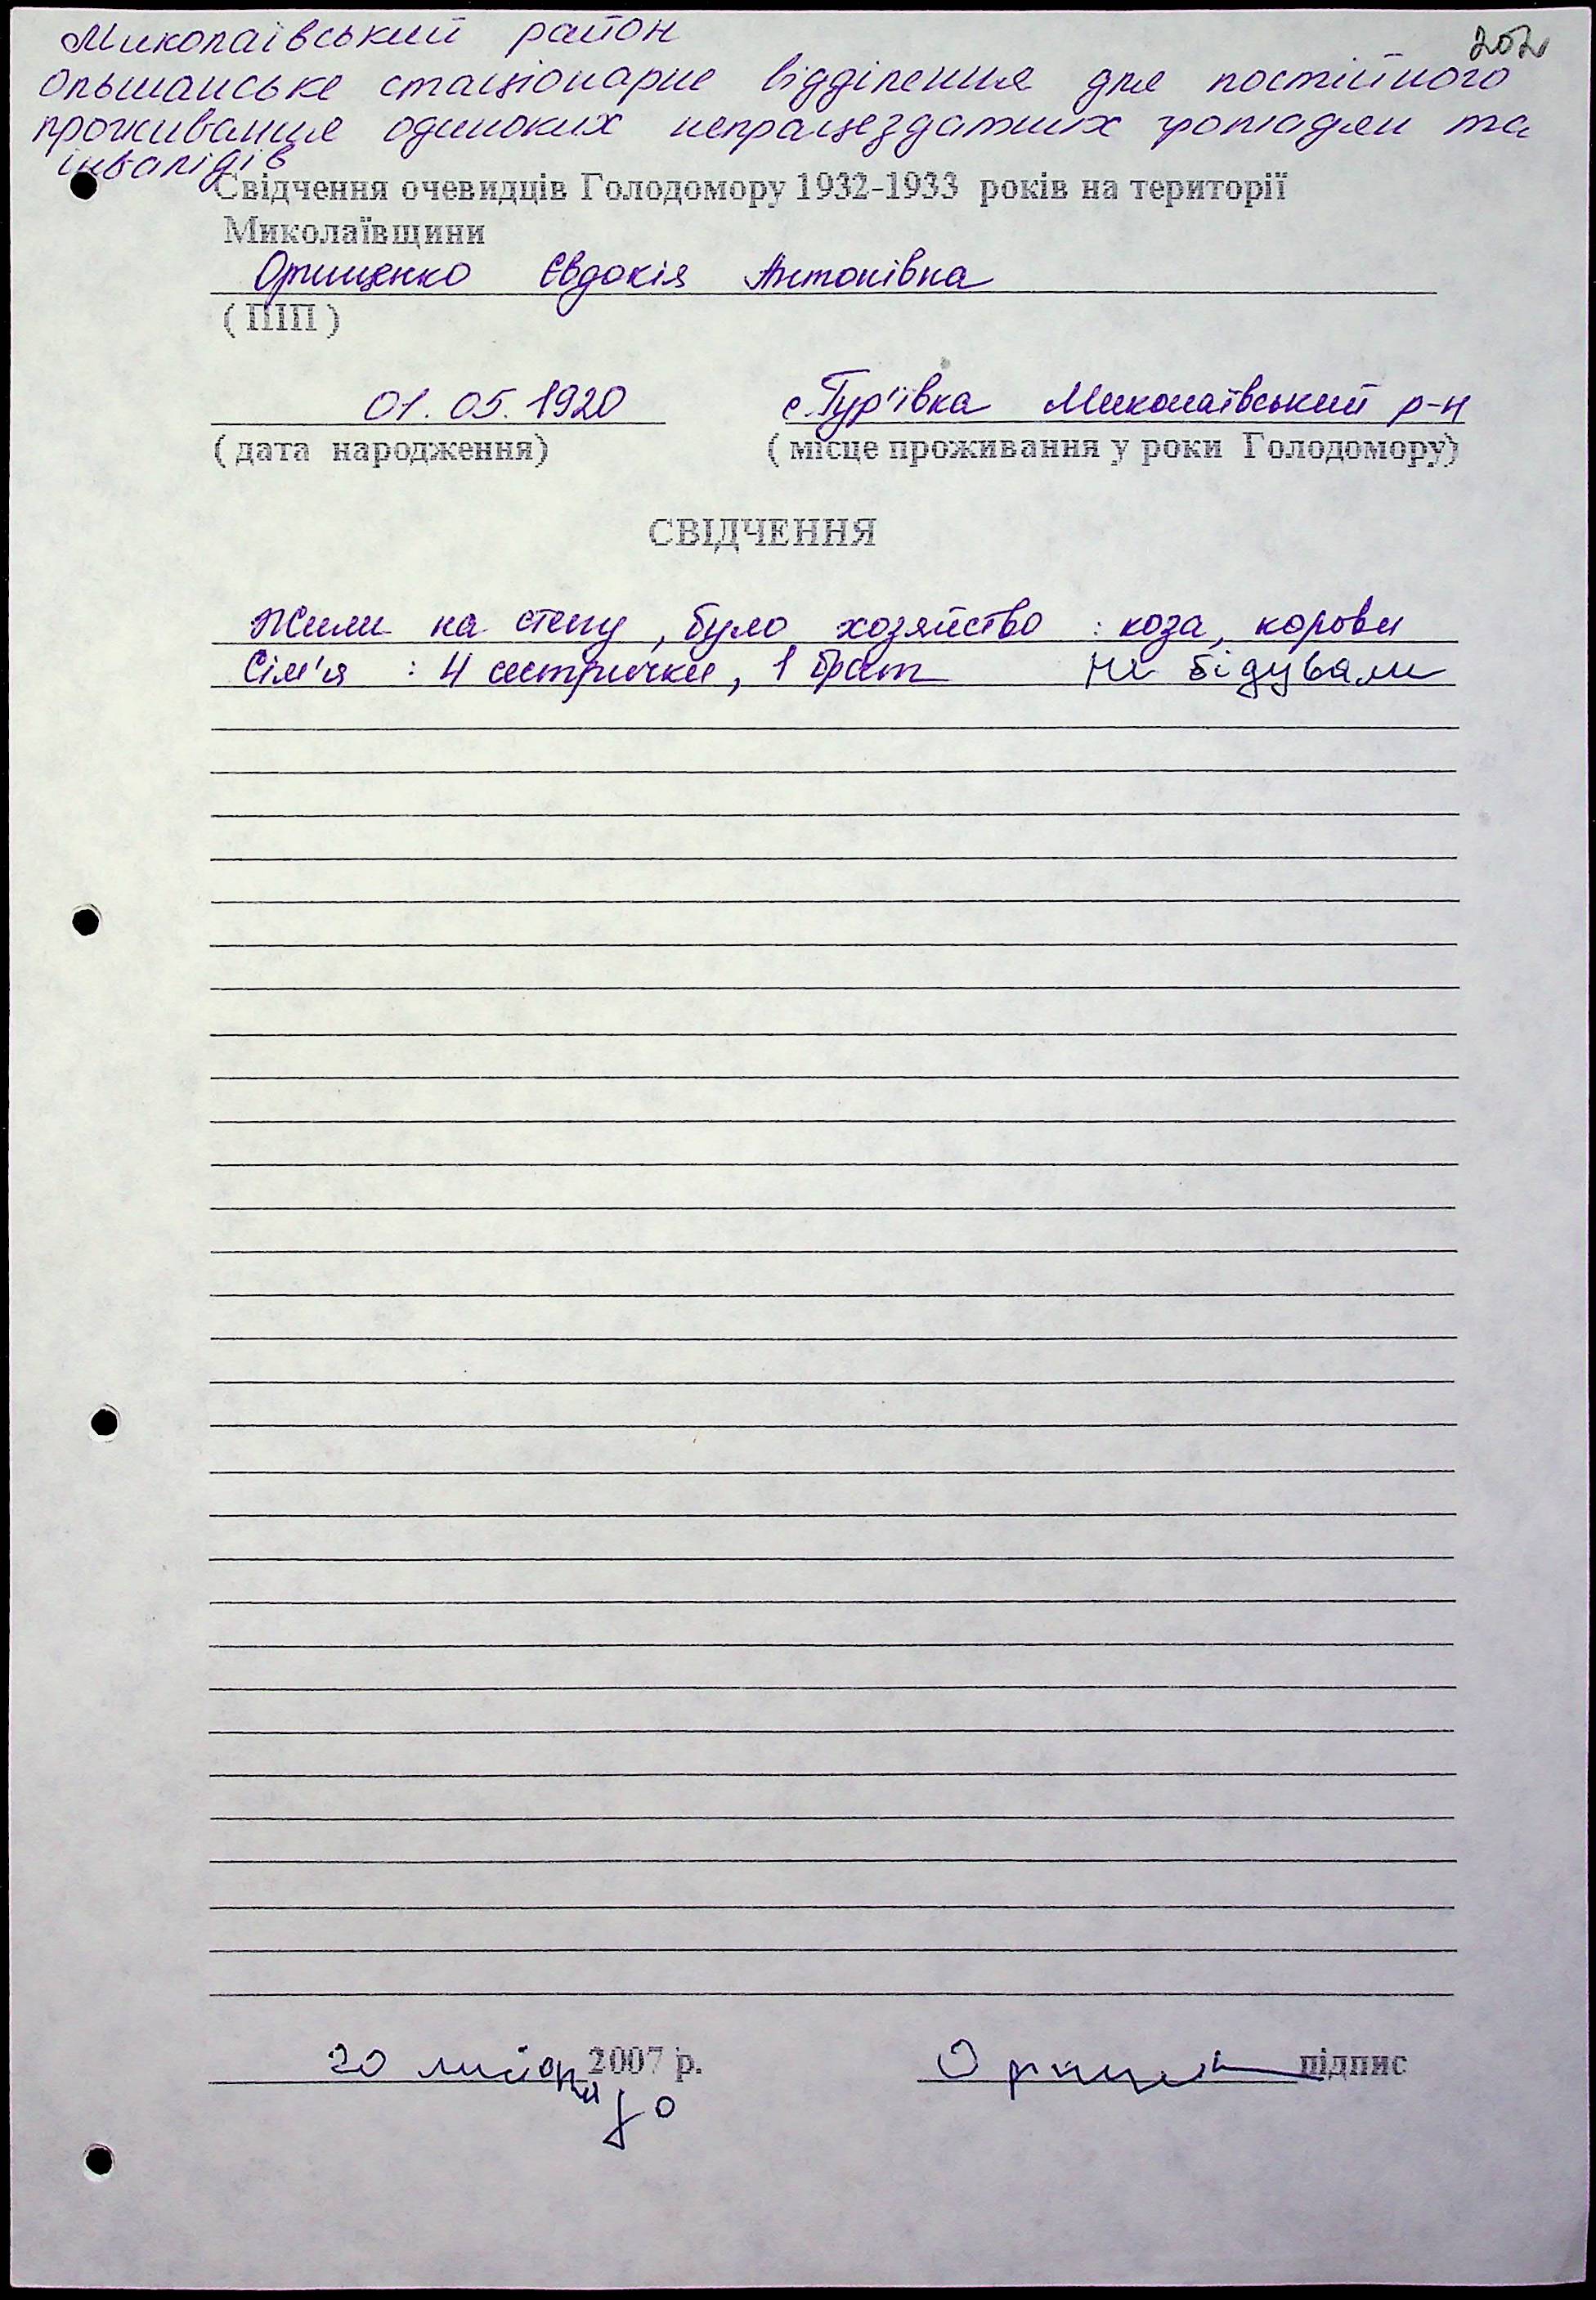 202
Миколаївський район
Ольшанське стаціонарне відділення для постійного
проживання одиноких непрацездатних громадян та
інвалідів
Свідчення очевидців Голодомору 1932-1933 років на території
Миколаївщини
Орищенко Євдокія Антонівна
( ПІП )
01. 05. 1920 с. Гур'ївка Миколаївський р-н
( дата народження) ( місце проживання у роки Голодомору)
СВІДЧЕННЯ
Жили на степу, було хозяйство : коза, корови
Сім'я : 4 сестрички, 1 брат не бідували
20 2007 р. підпис